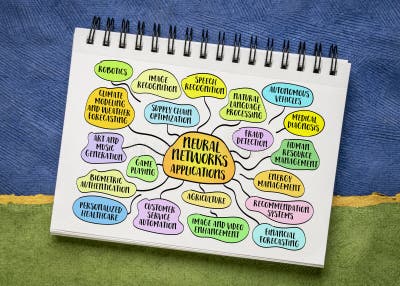 ROBOTICS
IMAGE
RECOGNITION
SPEECH
RECOGNITION
AUTONOMOUS
VEHICLES
CLIMATE
MODELING
AND WEATHER
FORECASTING
SUPPLY CHAIN
OPTIMIZATION
NATURAL
LANGUAGE
PROCESSING
MEDICAL
DIAGNOSIS
FRAUD
DETECTION
ART AND
MUSIC
GENERATION
NEURAL
NETWORKS
APPLICATIONS
HUMAN
RESOURCE
MANAGEMENT
GAME
PLAYING
ENERGY
MANAGEMENT
BIOMETRIC
AUTHENTICATION
AGRICULTURE
RECOMMENDATION
SYSTEMS
PERSONALIZED
HEALTHCARE
CUSTOMER
SERVICE
AUTOMATION
IMAGE AND VIDEO
ENHANCEMENT
FINANCIAL
FORECASTING